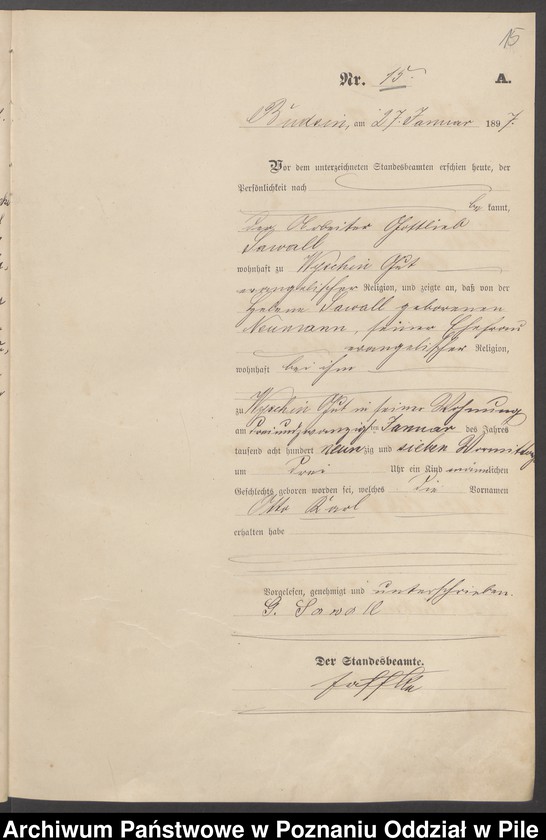 15
Nr. 15. A.
Budsin, am 27. Januar 1897.
Vor dem unterzeichneten Standesbeamten erschien heute, der
Persönlichkeit nach
be kannt,
der Arbeiter Gottlieb
Sawall
wohnhaft zu Wyschin Gut
evangelischer Religion, und zeigte an, daß von der
Helene Sawall geborenen
Neumann, seiner Ehefrau
evangelischer Religion,
wohnhaft bei ihm
zu Wyschin Gut in seiner Wohnung
am dreiundzwanzigten Januar des Jahres
tausend acht hundert neunzig und sieben Vormittags
um drei Uhr ein Kind männlichen
Geschlechts geboren worden sei, welches die Vornamen
Otto Karl
erhalten habe
Vorgelesen, genehmigt und unterschrieben.
G. Sawall
Der Standesbeamte.
Archiwum Państwowe w Poznaniu Oddział w Pile